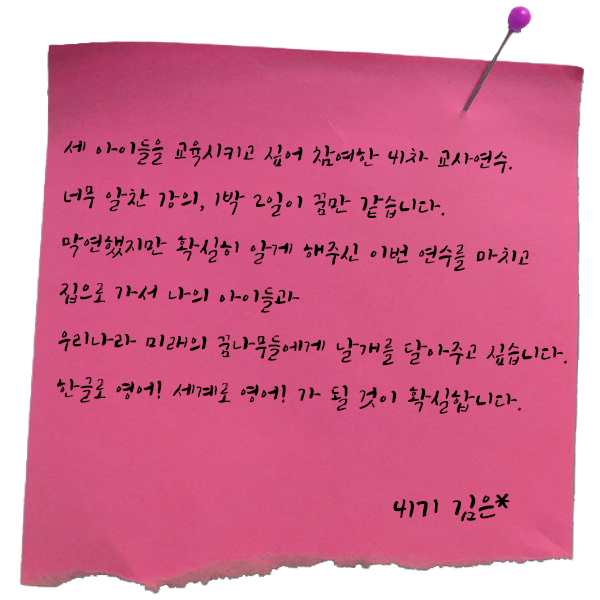 세 아이들을 교육시키고 싶어 참여한 41차 교사연수.
너무 알찬 강의, 1박 2일이 꿈만 같습니다.
막연했지만 확실히 알게 해주신 이번 연수를 마치고
집으로 가서 나의 아이들과
우리나라 미래의 꿈나무들에게 날개를 달아주고 싶습니다.
한글로 영어! 세계로 영어! 가 될 것이 확실합니다.
41기 김은*